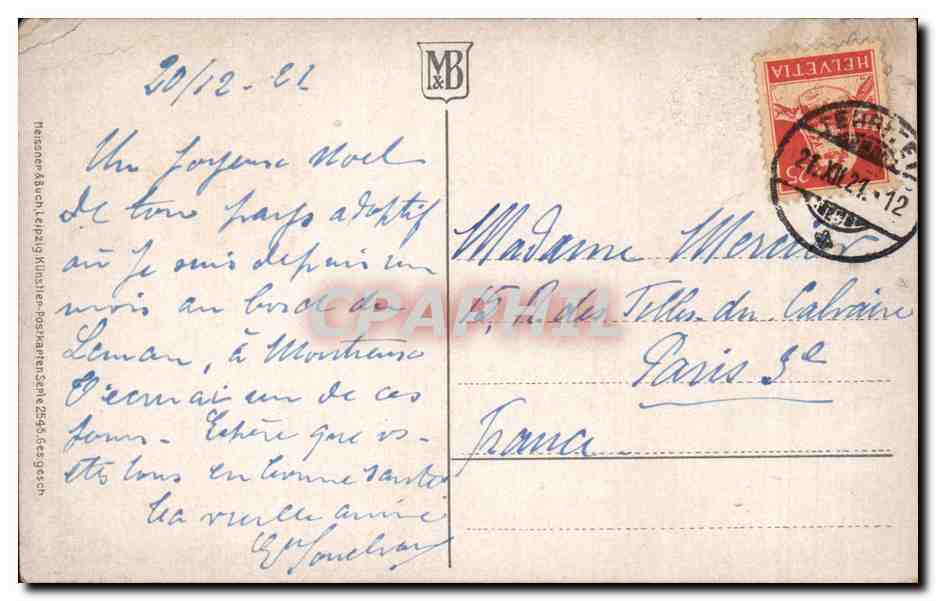 20/12 - 21
M&B
HELVETIA
25
21.XII.21.-12
Un joyeux Noel
de ton pays adoptif
où je suis depuis un
mois au bord du
Leman, à Montreux
T'ecrirai un de ces
jours - Espère que vs
etes tous en bonne santé
Ta vieille amie
Madame
15, R. des Filles du Calvaire
Paris 3e
France
Meissner & Buch, Leipzig. Künstler-Postkarten Serie 2545. Ges. gesch
CPAPHIL